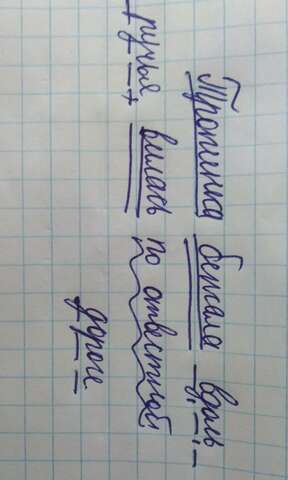 Тропинка бежала вдоль
ручья вилась по отвестной
дороге